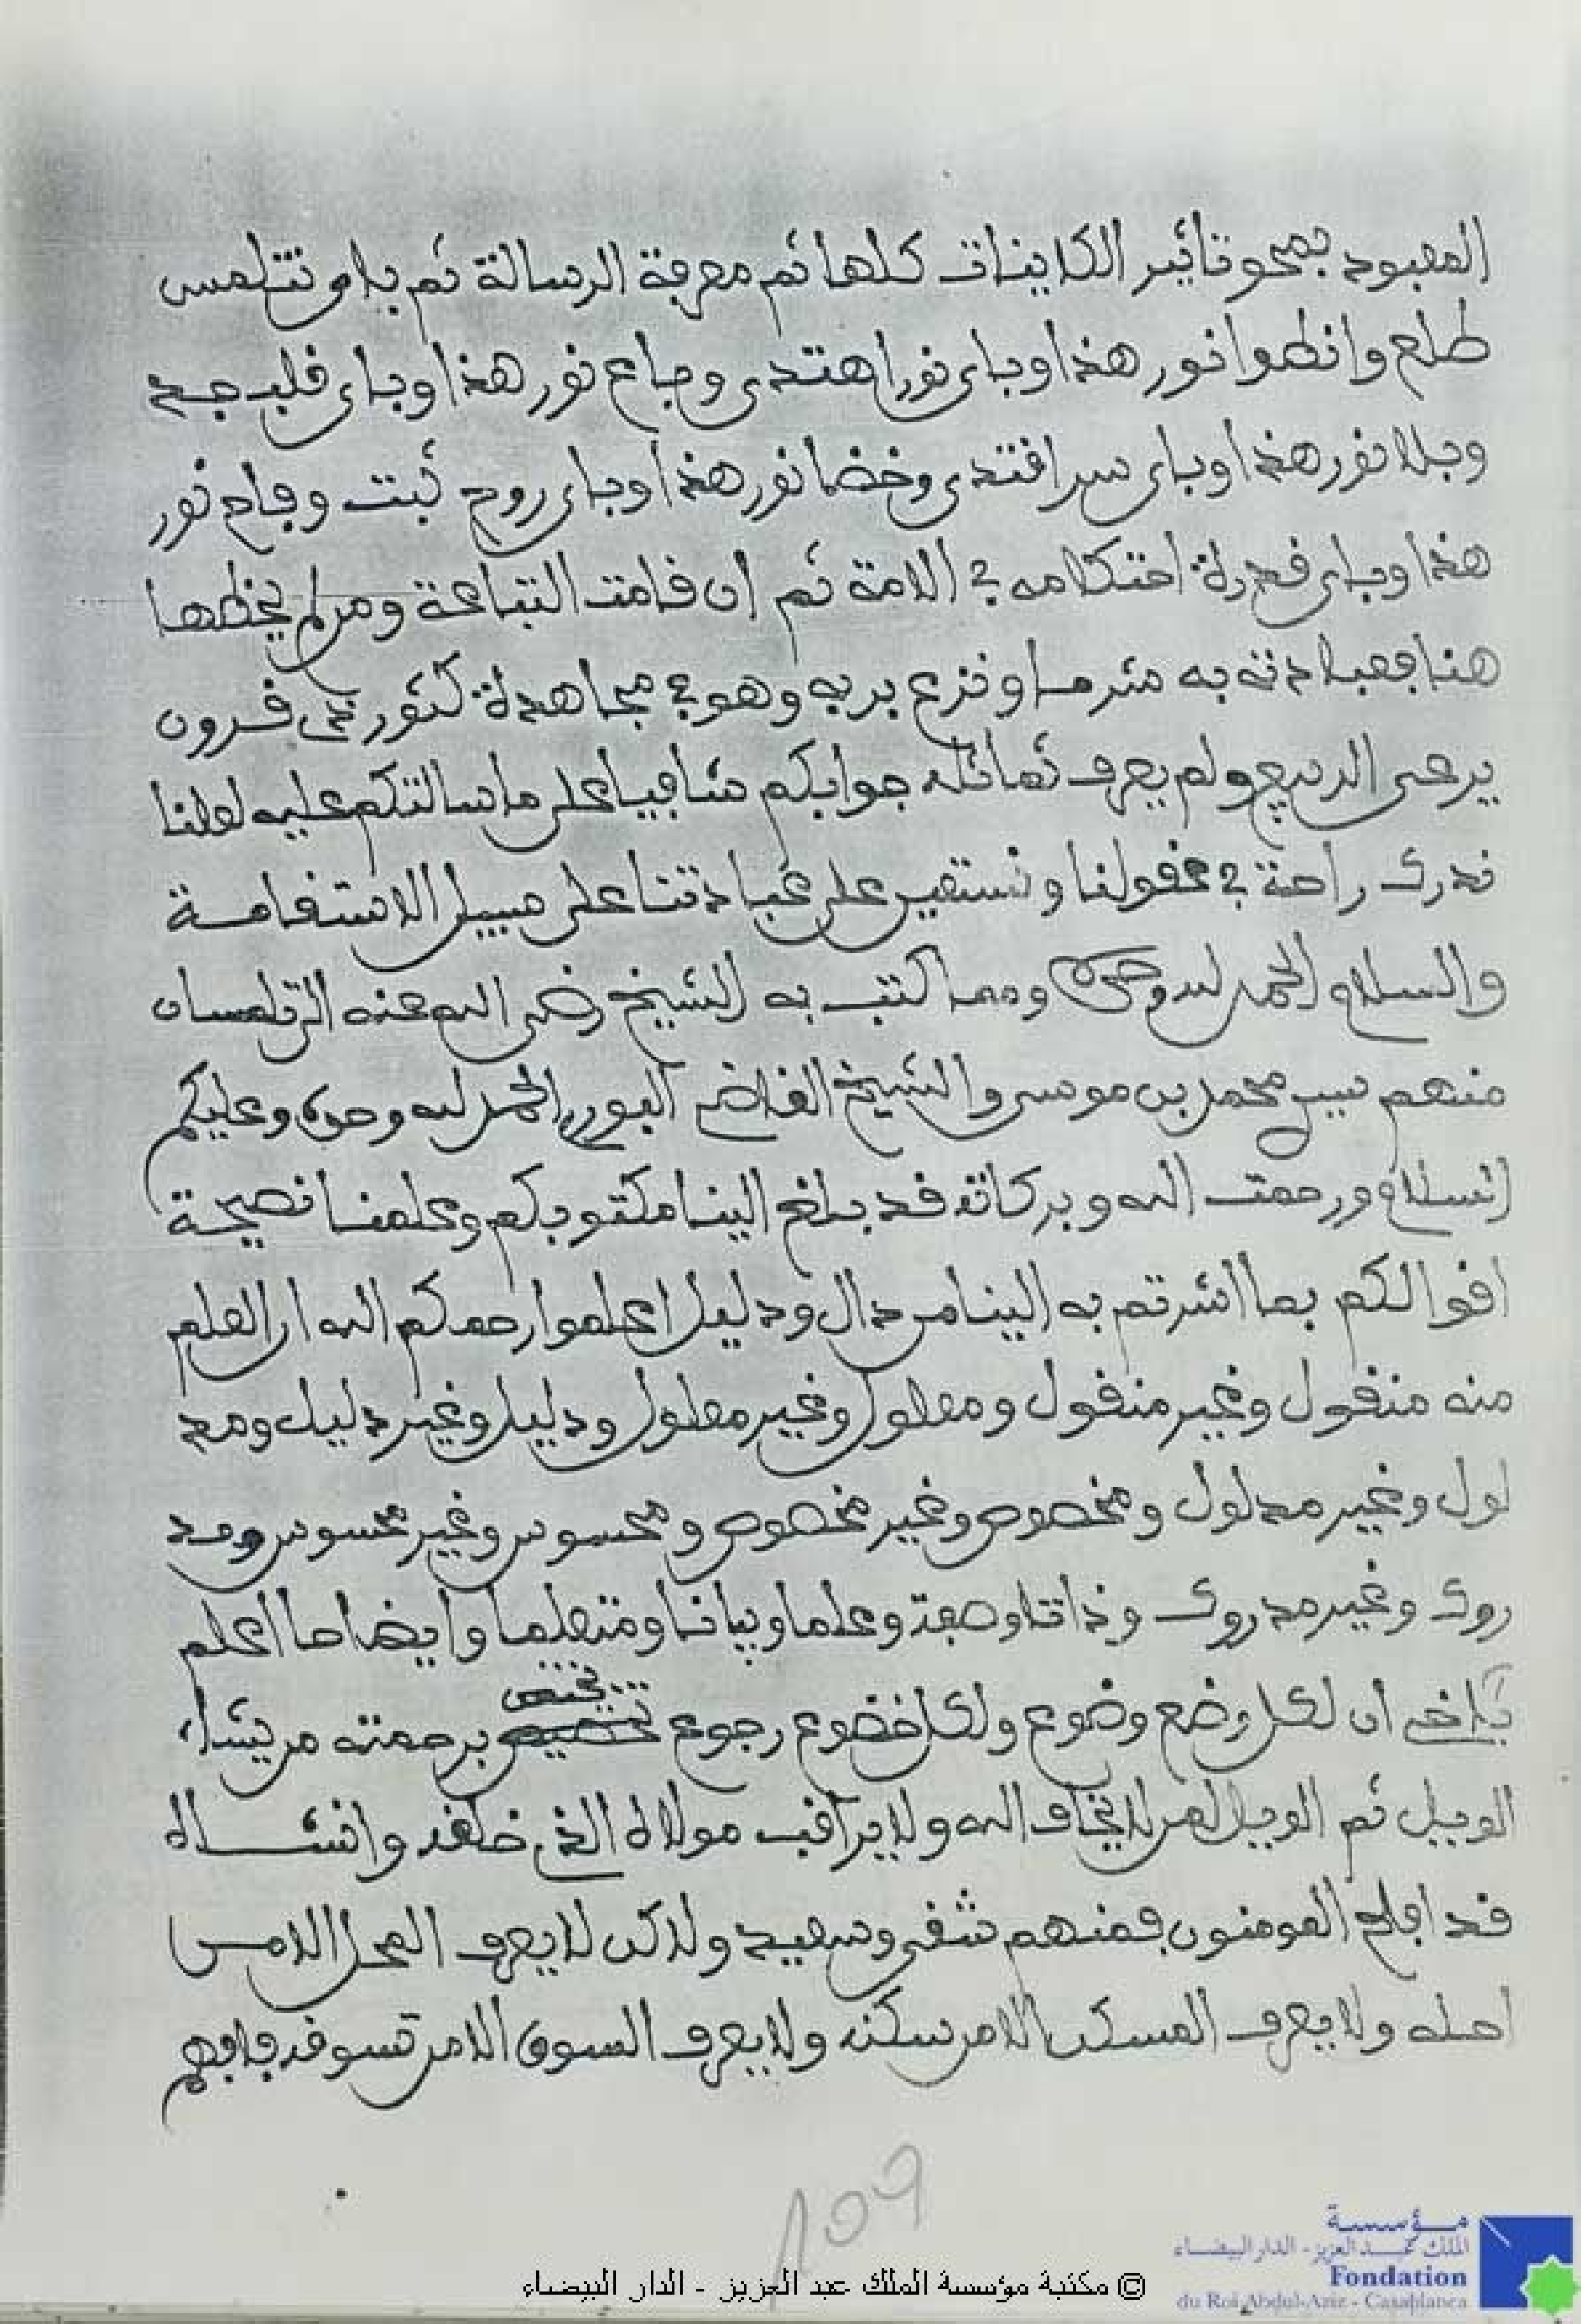 المعبود بمحو تاثير الكاينات كلها ثم معرفة الرسالة ثم باي شمس
طلع وانطوا نور هذا وباي نور اهتدى وجاع نور هذا وباي قلب جد
وجلا نور هذا وباي سر اقتدى وخضا نور هذا وباي روح ثبت وفاح نور
هذا وباي قدرة احتكامه في الامة ثم ان قامت التباعة ومن لم يخظها
هنا فعبادته به وهو في مجاهدة كثور قرون
يرعى الربيع ولم يعرف جوابكم شافيا على ما سالتكم عليه لعلنا
ندرك راحة في عقولنا ونستعين على عبادتنا على سبيل الاستقامة
والسلام الحمد لله وحده ومما كتب به الشيخ رضي الله عنه الى تلمسان
منهم سيد محمد بن موسى والشيخ القاضي الحمد لله وحده وعليكم
السلام ورحمت الله وبركاته قد بلغ الينا مكتوبكم وعلمنا نصيحة
اقوالكم بما اشرتم به الينا من دال ودليل اعلموا رحمكم الله ان العلم
منه منقول وغير منقول ومعلول وغير معلول ودليل وغير دليل ومد
لول وغير مدلول ومخصوص وغير مخصوص ومحسوس وغير محسوس ومد
روك وغير مدروك وذاتا وصفة وعلما وبيانا ومتعلما وايضاحا اعلم
يا اخي ان لكل وضع وضوع ولكل خضوع رجوع يختص برحمته من يشاء
الويل ثم الويل لمن لا يخاف الله ولا يراقب مولاه الذي خلقه وانشاه
قد افلح المومنون فمنهم شقي وسعيد ولاكن لا يعرف المحل الا من
احله ولا يعرف المسكن الا من سكنه ولا يعرف السوق الا من تسوقه فافهم
© مكتبة مؤسسة الملك عبد العزيز - الدار البيضاء
مؤسسة
الملك عبد العزيز - الدار البيضاء
Fondation
du Roi Abdul-Aziz - Casablanca